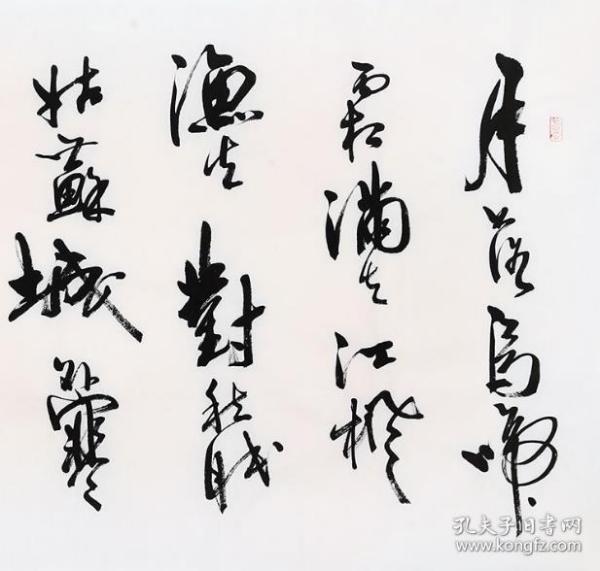 月落烏啼
霜滿天江楓
漁火對愁眠
姑蘇城外寒
孔夫子旧书网
www.kongfz.com